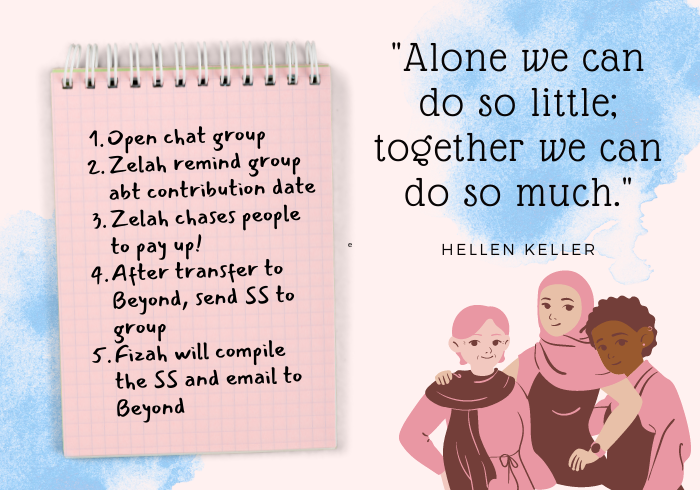 1. Open chat group
2. Zelah remind group
abt contribution date
3. Zelah chases people
to pay up!
4. After transfer to
Beyond, send SS to
group
5. Fizah will compile
the SS and email to
Beyond
e
"Alone we can
do so little;
together we can
do so much."
HELLEN KELLER